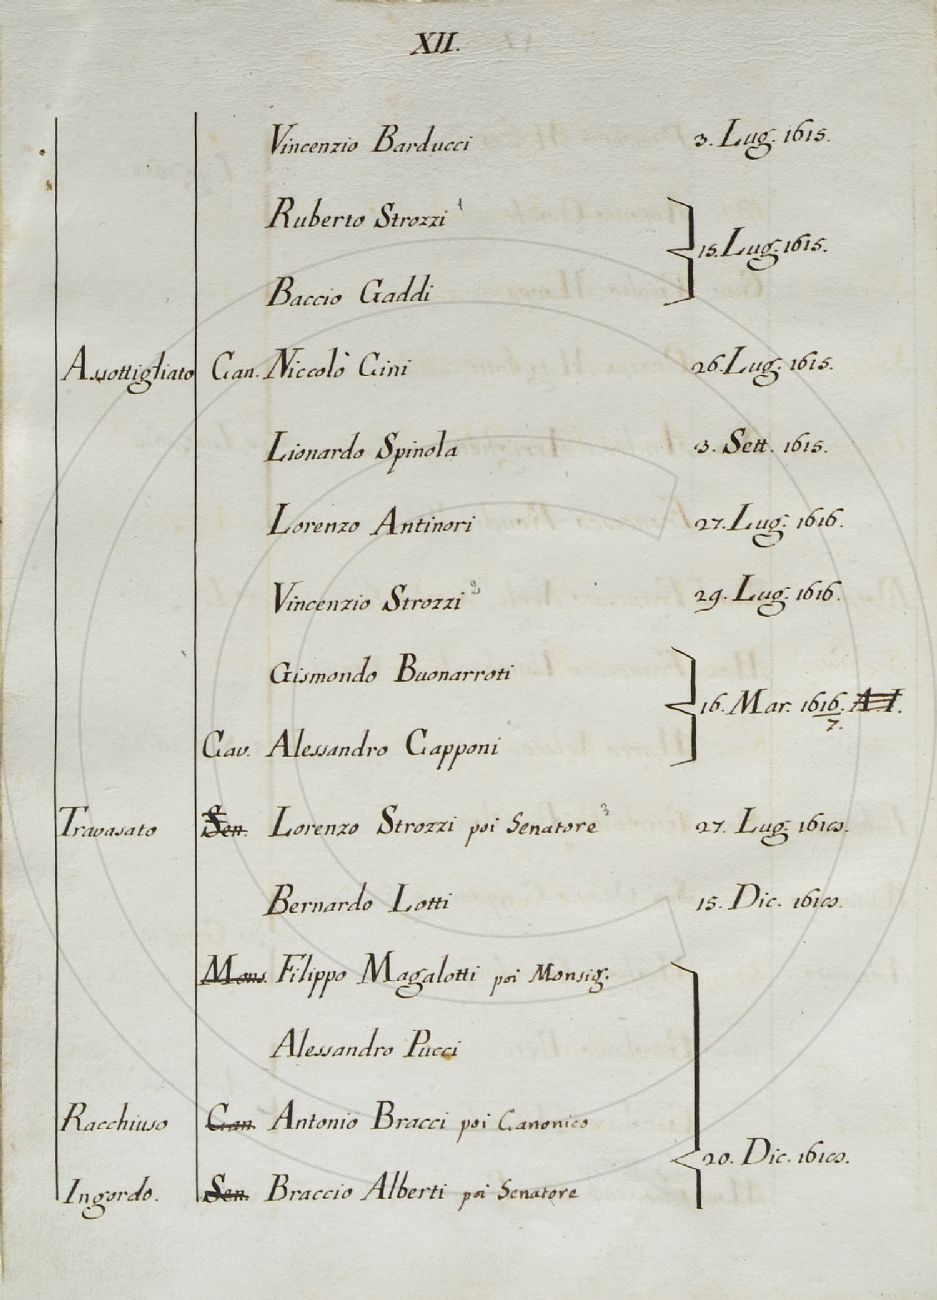 XII.
Vincenzio Barducci 3. Lug. 1615.
Ruberto Strozzi 1
15. Lug. 1615.
Baccio Gaddi
Assottigliato Can. Niccolò Cini 26. Lug. 1615.
Lionardo Spinola 3. Sett. 1615.
Lorenzo Antinori 27. Lug. 1616.
Vincenzio Strozzi 2 29. Lug. 1616.
Gismondo Buonarroti
16. Mar. 1616/7.
Cav. Alessandro Capponi
Travasato Sen. Lorenzo Strozzi poi Senatore 3 27. Lug. 1618.
Bernardo Lotti 15. Dic. 1618.
Mons. Filippo Magalotti poi Monsig.
Alessandro Pucci
Racchiuso Can. Antonio Bracci poi Canonico
20. Dic. 1618.
Ingordo. Sen. Braccio Alberti poi Senatore